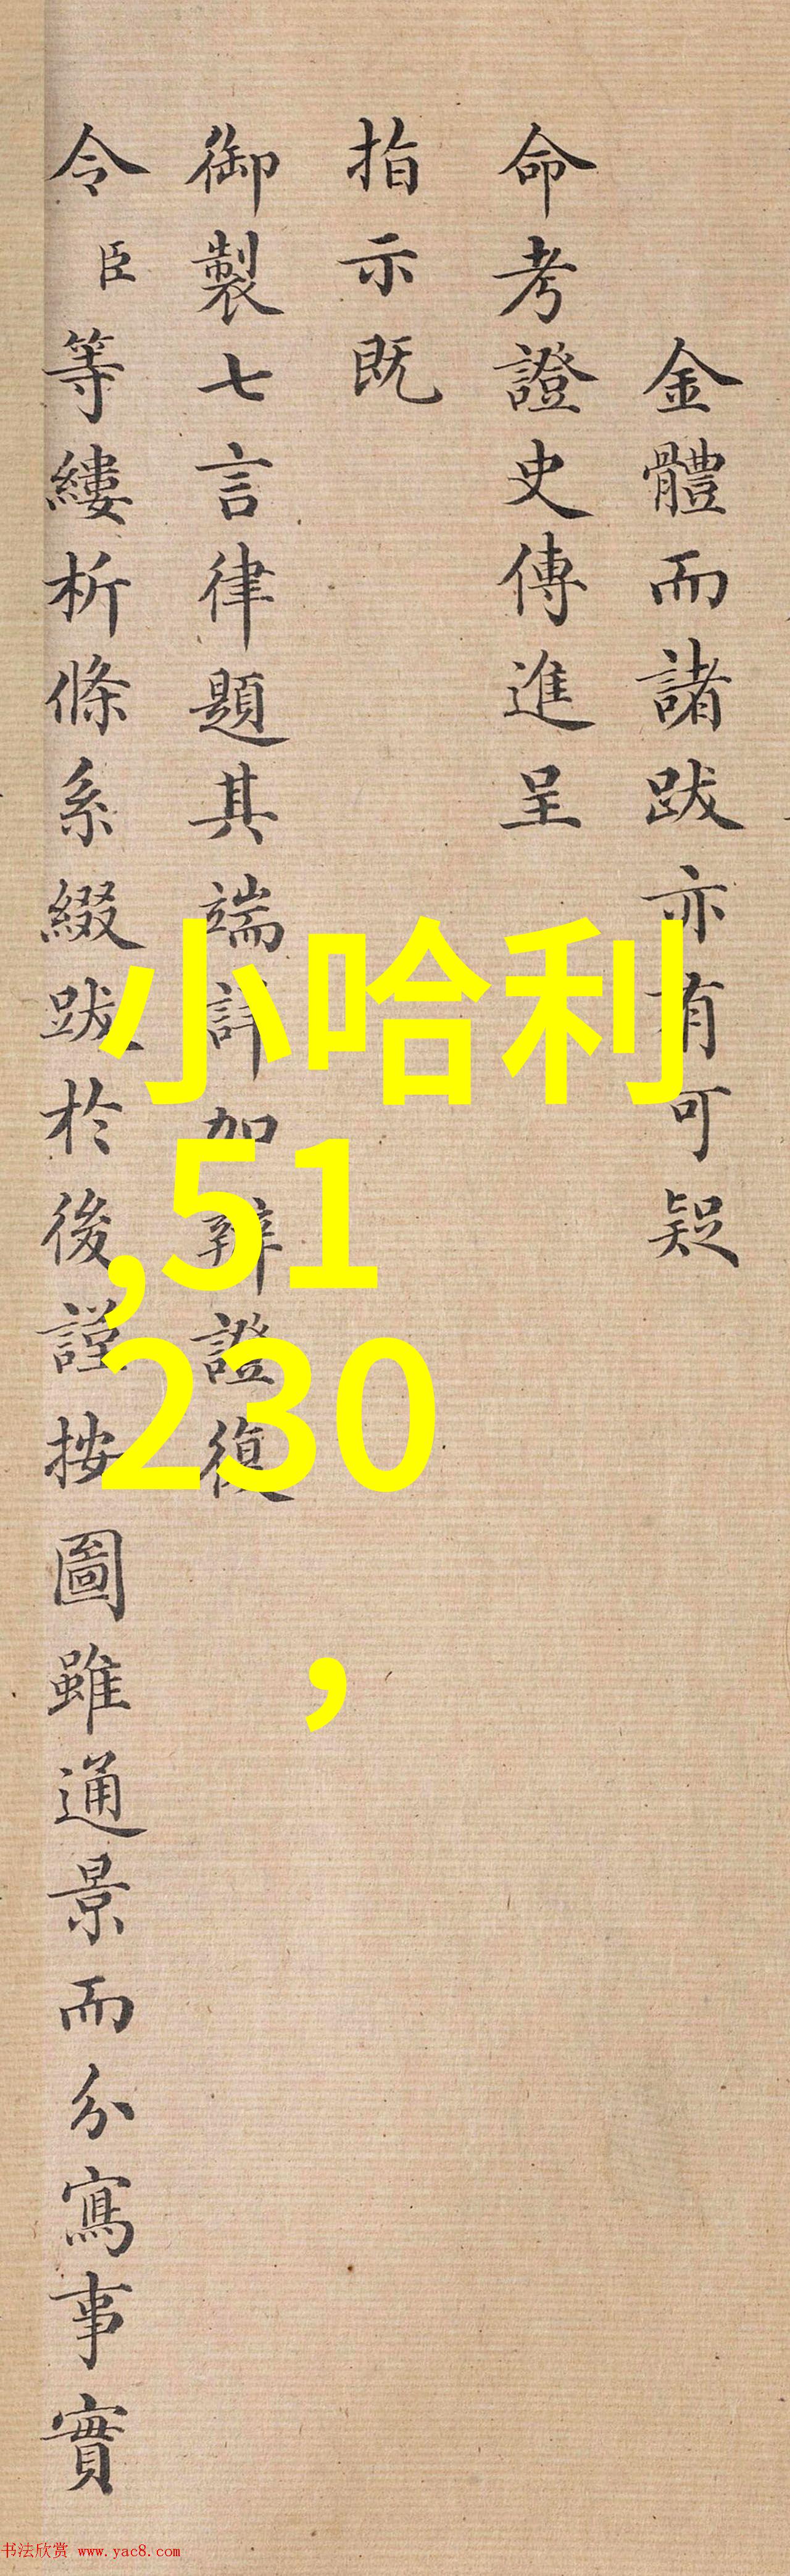 金體而諸跋亦有可疑
命考證史傳進呈
指示既
御製七言律題其端詳加辨證復
令臣等縷析條系綴跋於後謹按圖雖通景而分寫事實
小哈利
,51
230
,
书法欣赏 www.yac8.com